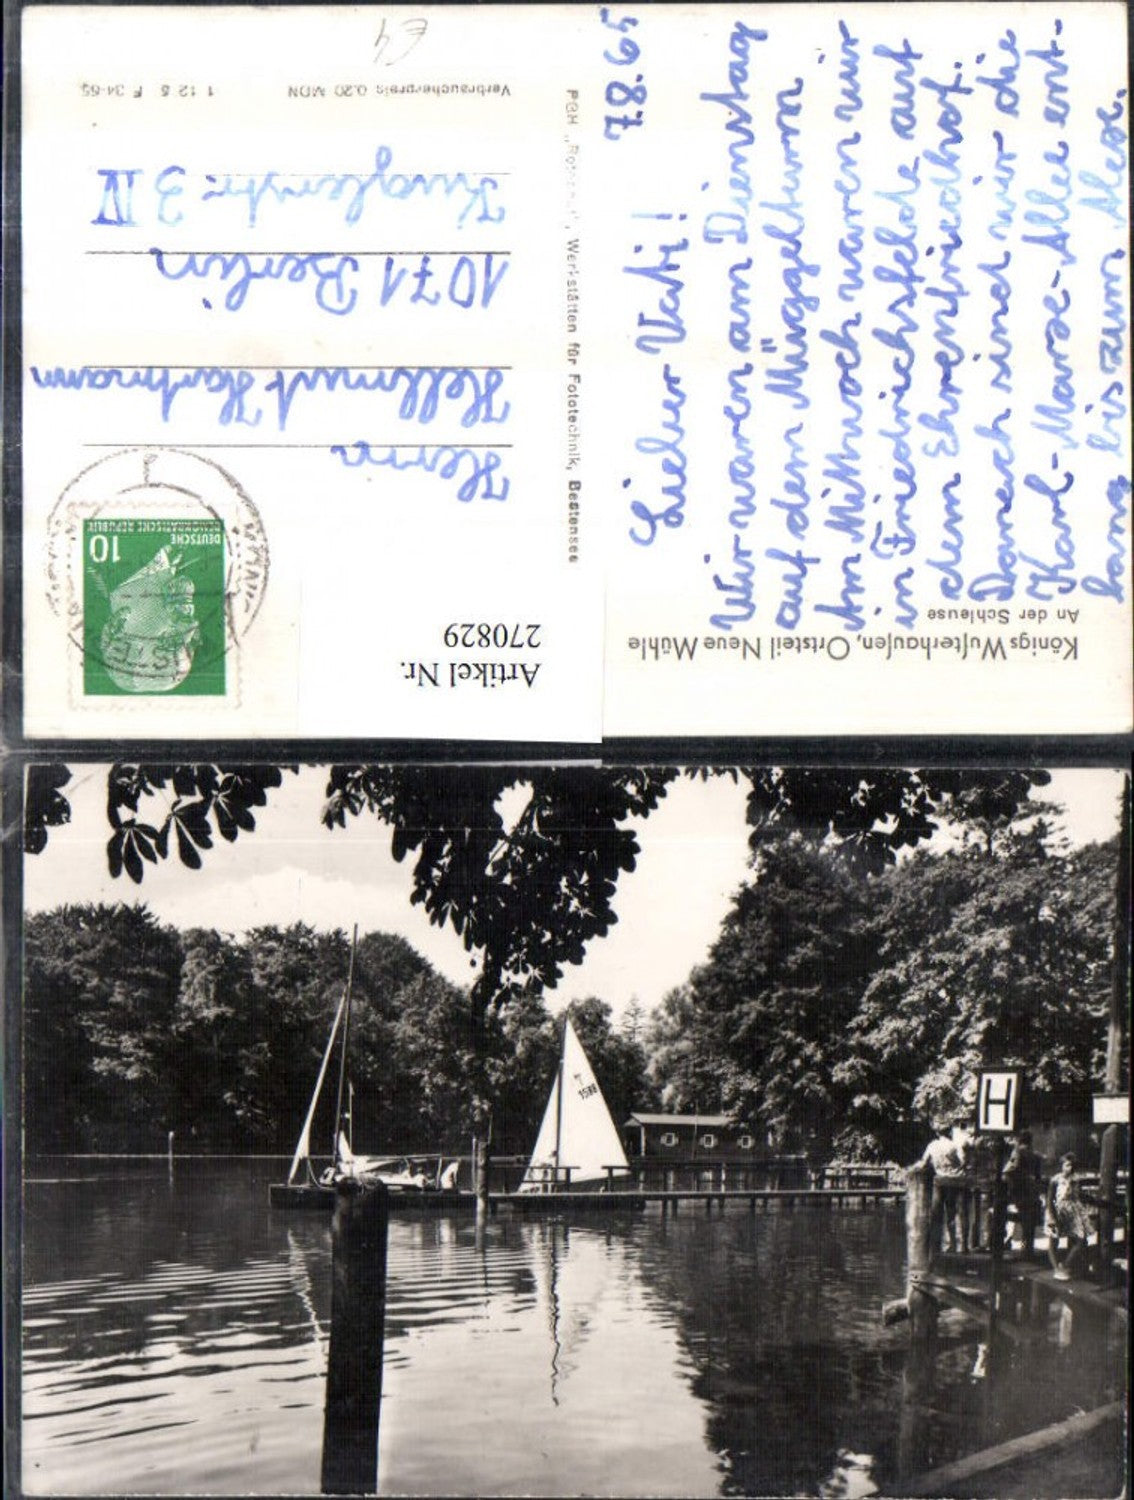 Königs Wusterhausen, Ortsteil Neue Mühle
An der Schleuse
7.8.65
Lieber Vati!
Wir waren am Dienstag
auf dem Müggelturm
Am Mittwoch waren wir
in Friedrichsfelde auf
dem Ehrenfriedhof.
Danach sind wir die
Karl-Marx-Allee ent-
lang bis zum Alex.
Werkstätten für Fototechnik, Bestensee
DEUTSCHE
DEMOKRATISCHE REPUBLIK
10
Herrn
Hellmut Hartmann
1071 Berlin
Kuglerstr. 3 IV
Verbraucherpreis 0,20 MDN
Artikel Nr.
270829
€4
1588
H